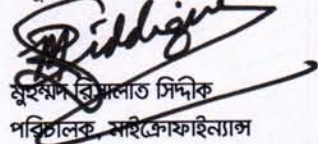 Siddique
মুহম্মদ রিসালাত সিদ্দীক
পরিচালক, মাইক্রোফাইন্যান্স